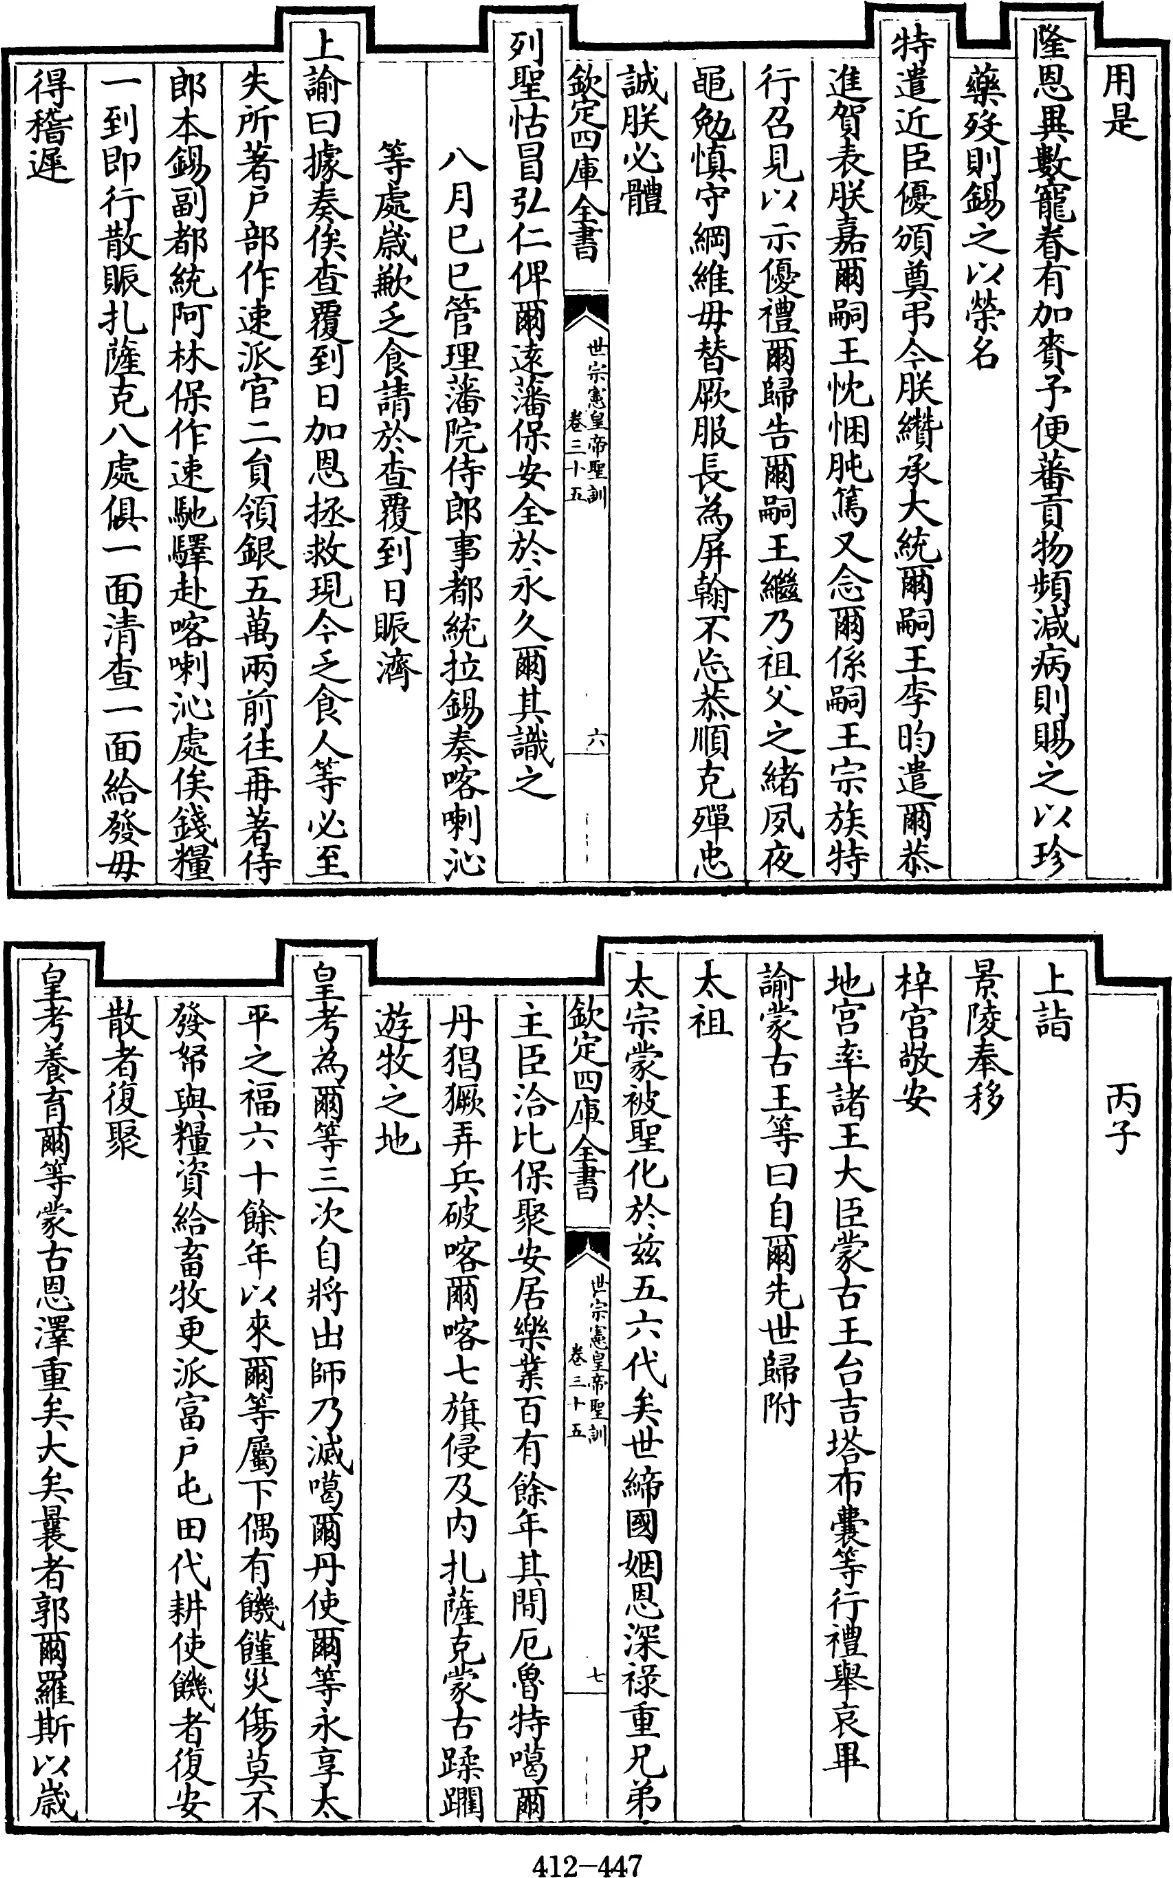 用是
隆恩異數寵眷有加賚予便蕃貢物頻減病則賜之以珍
藥歿則錫之以榮名
特遣近臣優頒奠弔今朕纘承大統爾嗣王李昀遣爾恭
進賀表朕嘉爾嗣王忱悃肫篤又念爾係嗣王宗族特
行召見以示優禮爾歸告爾嗣王繼乃祖父之緒夙夜
黽勉慎守綱維毋替厥服長為屏翰不忘恭順克殫忠
誠朕必體
欽定四庫全書
世宗憲皇帝聖訓
卷三十五
六
列聖怙冒弘仁俾爾逺藩保安全於永久爾其識之
八月已巳管理藩院侍郎事都統拉錫奏喀喇沁
等處歲歉乏食請於查覆到日賑濟
上諭曰據奏俟查覆到日加恩拯救現今乏食人等必至
失所著户部作速派官二貟領銀五萬兩前往再著侍
郎本錫副都統阿林保作速馳驛赴喀喇沁處俟錢糧
一到即行散賑扎薩克八處俱一面清查一面給發毋
得稽遲
丙子
上詣
景陵奉移
梓宫敬安
地宫率諸王大臣蒙古王台吉塔布囊等行禮舉哀畢
諭蒙古王等曰自爾先世歸附
太祖
太宗蒙被聖化於兹五六代矣世締國姻恩深禄重兄弟
欽定四庫全書
世宗憲皇帝聖訓
卷三十五
七
主臣洽比保聚安居樂業百有餘年其間厄魯特噶爾
丹猖獗弄兵破喀爾喀七旗侵及内扎薩克蒙古蹂躪
遊牧之地
皇考為爾等三次自將出師乃滅噶爾丹使爾等永享太
平之福六十餘年以來爾等屬下偶有饑饉災傷莫不
發帑與糧資給畜牧更派富户屯田代耕使饑者復安
散者復聚
皇考養育爾等蒙古恩澤重矣大矣曩者郭爾羅斯以歲
412-447